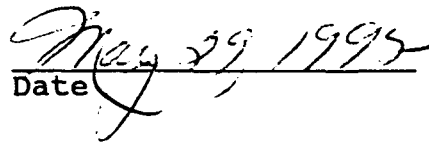 May 29, 1992
Date